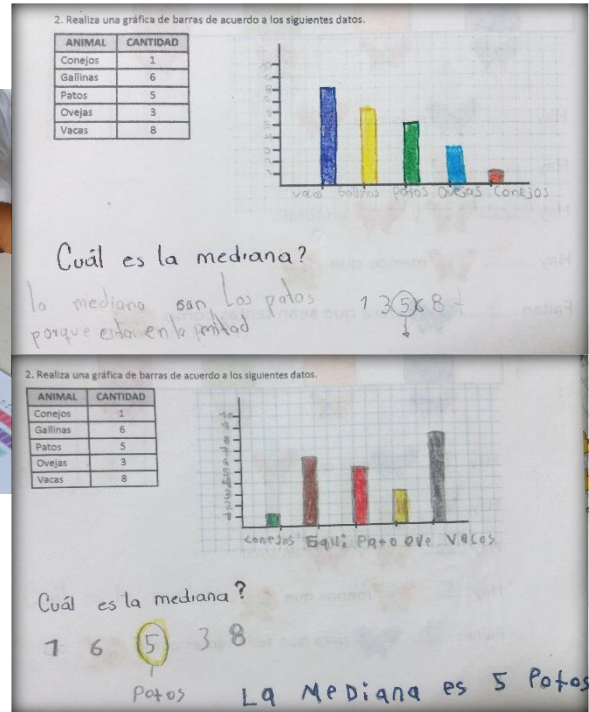 2. Realiza una gráfica de barras de acuerdo a los siguientes datos.
ANIMAL CANTIDAD
Conejos 1
Gallinas 6
Patos 5
Ovejas 3
Vacas 8
vacas Galinas patos Ovejas Conejos
Cuál es la mediana?
la mediana san Los patos
porque esta en la mitad
1 3 5 6 8
2. Realiza una gráfica de barras de acuerdo a los siguientes datos.
ANIMAL CANTIDAD
Conejos 1
Gallinas 6
Patos 5
Ovejas 3
Vacas 8
conejos Pato ove Vacas
Cuál es la mediana?
1 6 5 3 8
Patos
La MeDiana es 5 Patos